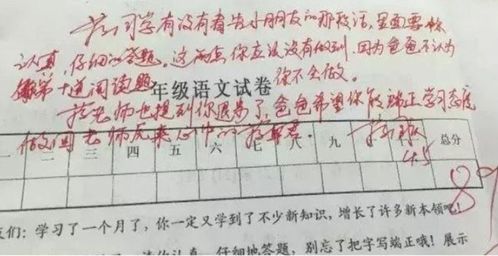 同学有没有看告小朋友的那段话，里面要你
认真，仔细的答题。这两点你应该没有做到，因为爸爸不认为
第十道阅读题
你不会做。
年级语文试卷
老师也提到你退步了，爸爸希望你能端正学习态度
做回老师
一 二 三 四 五 六 七 八 九 总分
45
89
友们：学习了一个月了，你一定又学到了不少新知识，增长了许多新本领吧！
认真、仔细地答题，别忘了把字写端正哦！展示